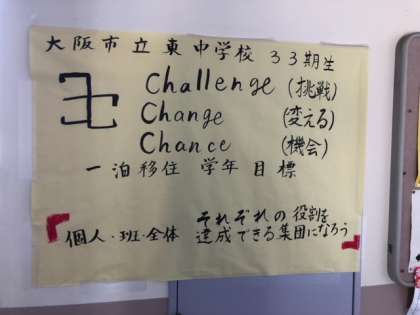 大阪市立東中学校 33期生
3C
Challenge (挑戦)
Change (変える)
Chance (機会)
一泊移住 学年目標
それぞれの役割を
個人・班・全体 達成できる集団になろう